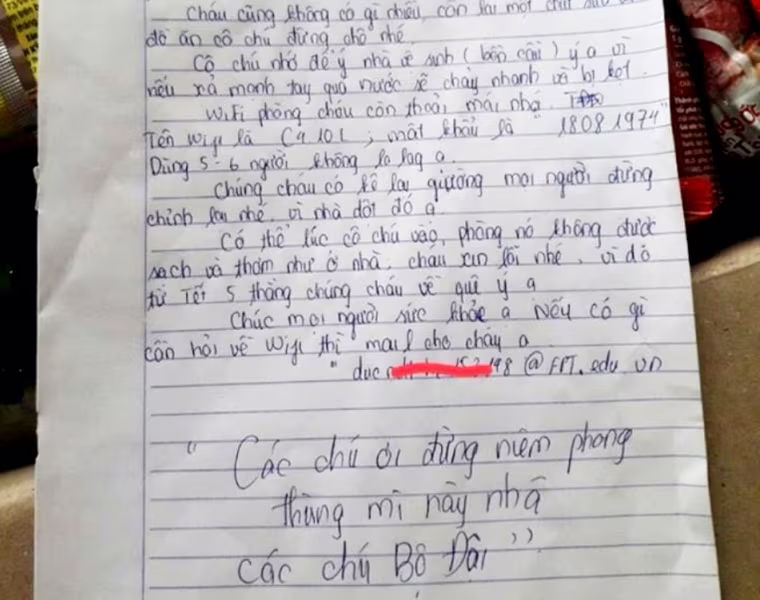 Cháu cũng không có gì nhiều, còn lại một chút
đồ ăn cô chú dùng cho nhé
Cô chú nhớ để ý nhà vệ sinh (bồn cầu) ý ạ vì
nếu xả mạnh tay quá nước sẽ chảy nhanh và bị kẹt.
Wifi phòng cháu còn thoải mái nhá.
Tên wifi là C4101, mật khẩu là 18081974"
Dùng 5-6 người không lo lag ạ.
Chúng cháu có kê lại giường mọi người đừng
chỉnh lại nhé, vì nhà dột đó ạ
Có thể lúc cô chú vào, phòng nó không được
sạch và thơm như ở nhà, cháu xin lỗi nhé, vì do
từ Tết 5 tháng chúng cháu về quê ý ạ
Chúc mọi người sức khỏe ạ Nếu có gì
cần hỏi về wifi thì mail cho cháu ạ
" duc 198 @FPT.edu vn
"Các chú ơi đừng niêm phong
thùng mì này nhá
các chú Bộ Đội"